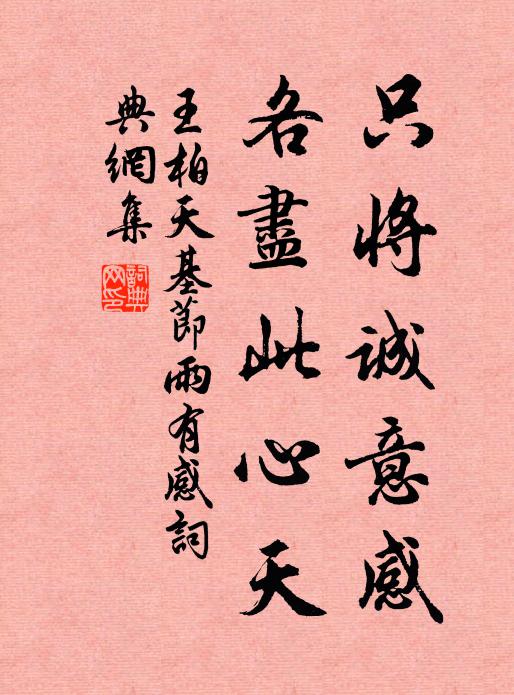 只將誠意感
各盡此心天
王柏天基節雨有感詞
典網集
詞典網印